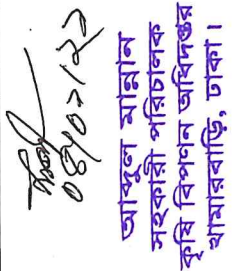 ০৪/০১/২১
আব্দুল মান্নান
সহকারী পরিচালক
কৃষি বিপণন অধিদপ্তর
খামারবাড়ি, ঢাকা।